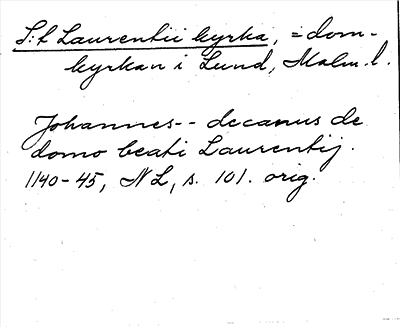 S:t Laurentii kyrka, = dom-
kyrkan i Lund, Malm. l.
Johannes -- decanus de
domo beati Laurentij.
1140-45, NL, s. 101. orig.